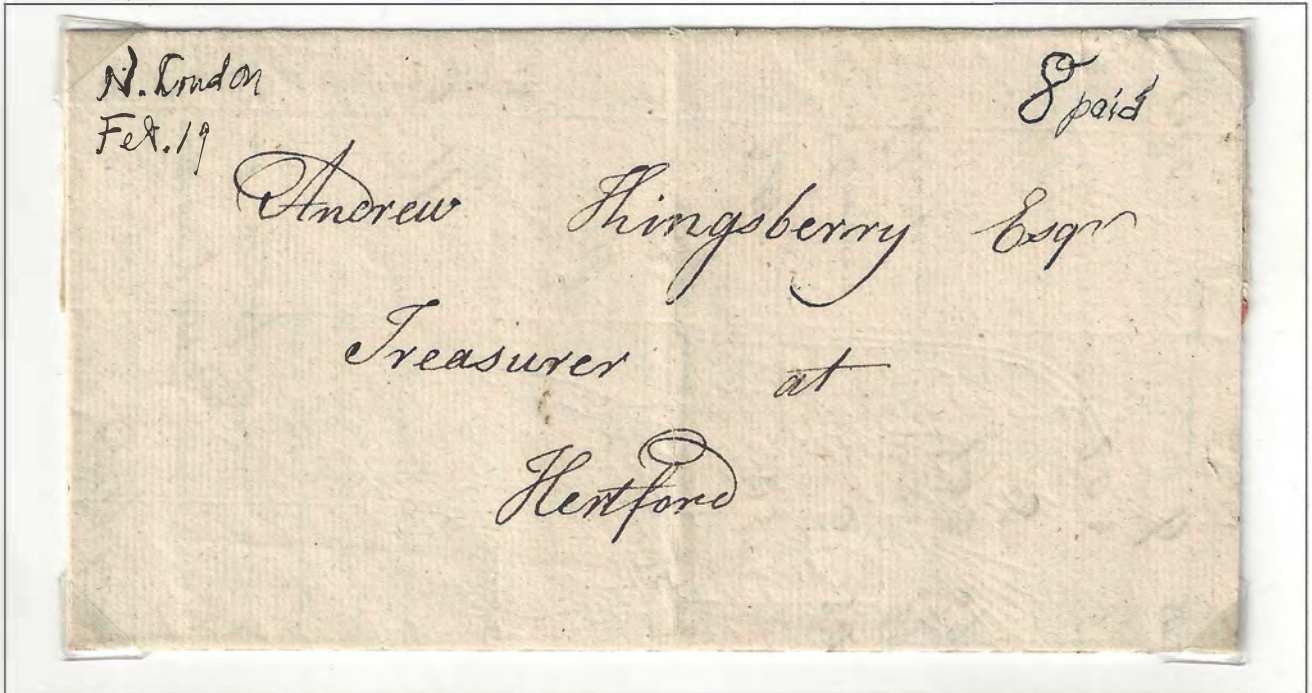 N. London
Feb. 19
8 paid
Andrew Kingsberry Esqr
Treasurer at
Hertford